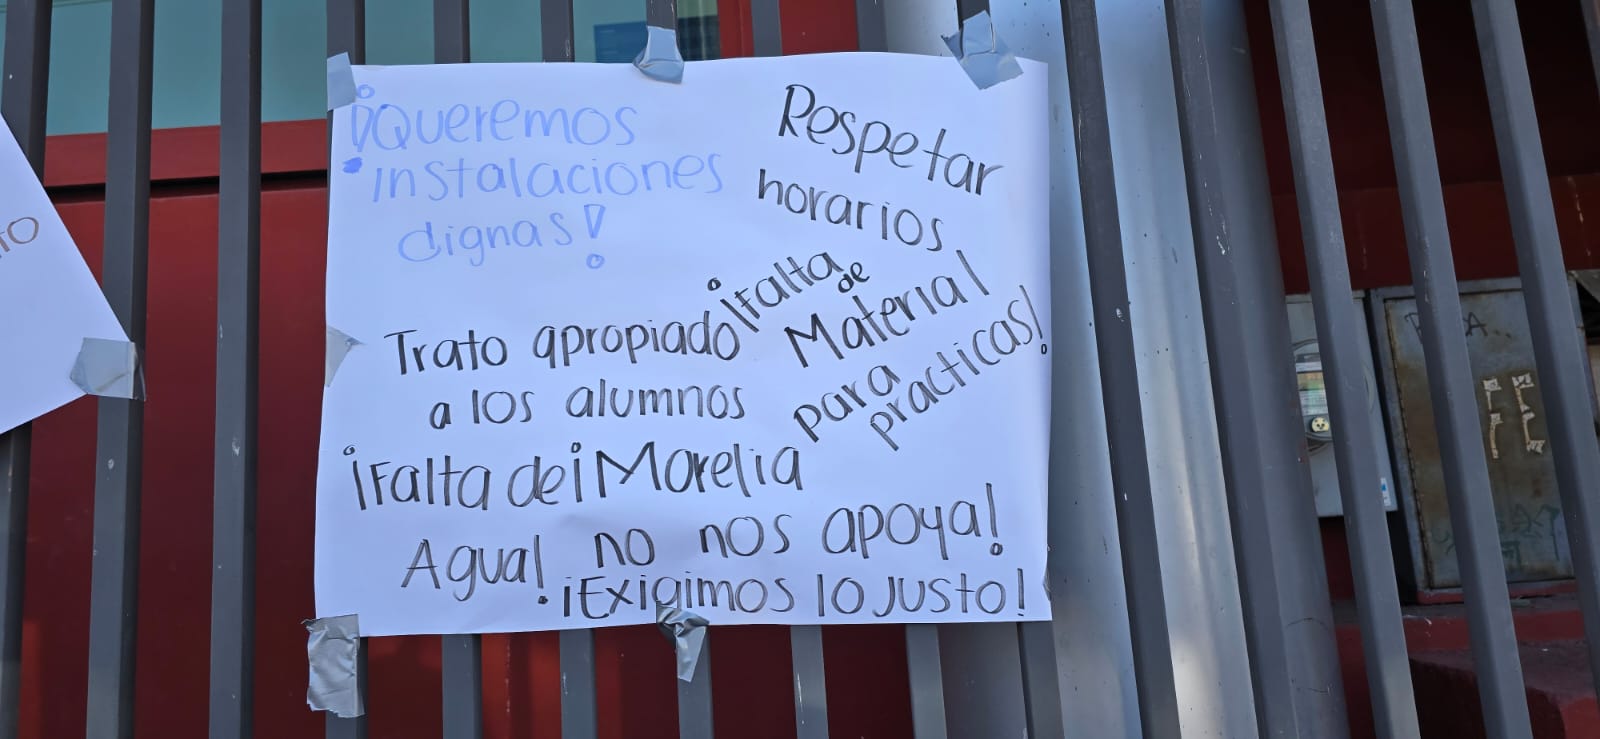 ¡Queremos
instalaciones
dignas!
Respetar
horarios
Trato apropiado
a los alumnos
¡Falta
de
Material
para
practicas!
¡Falta de
Agua!
¡Morelia
no nos apoya!
¡Exigimos lo justo!